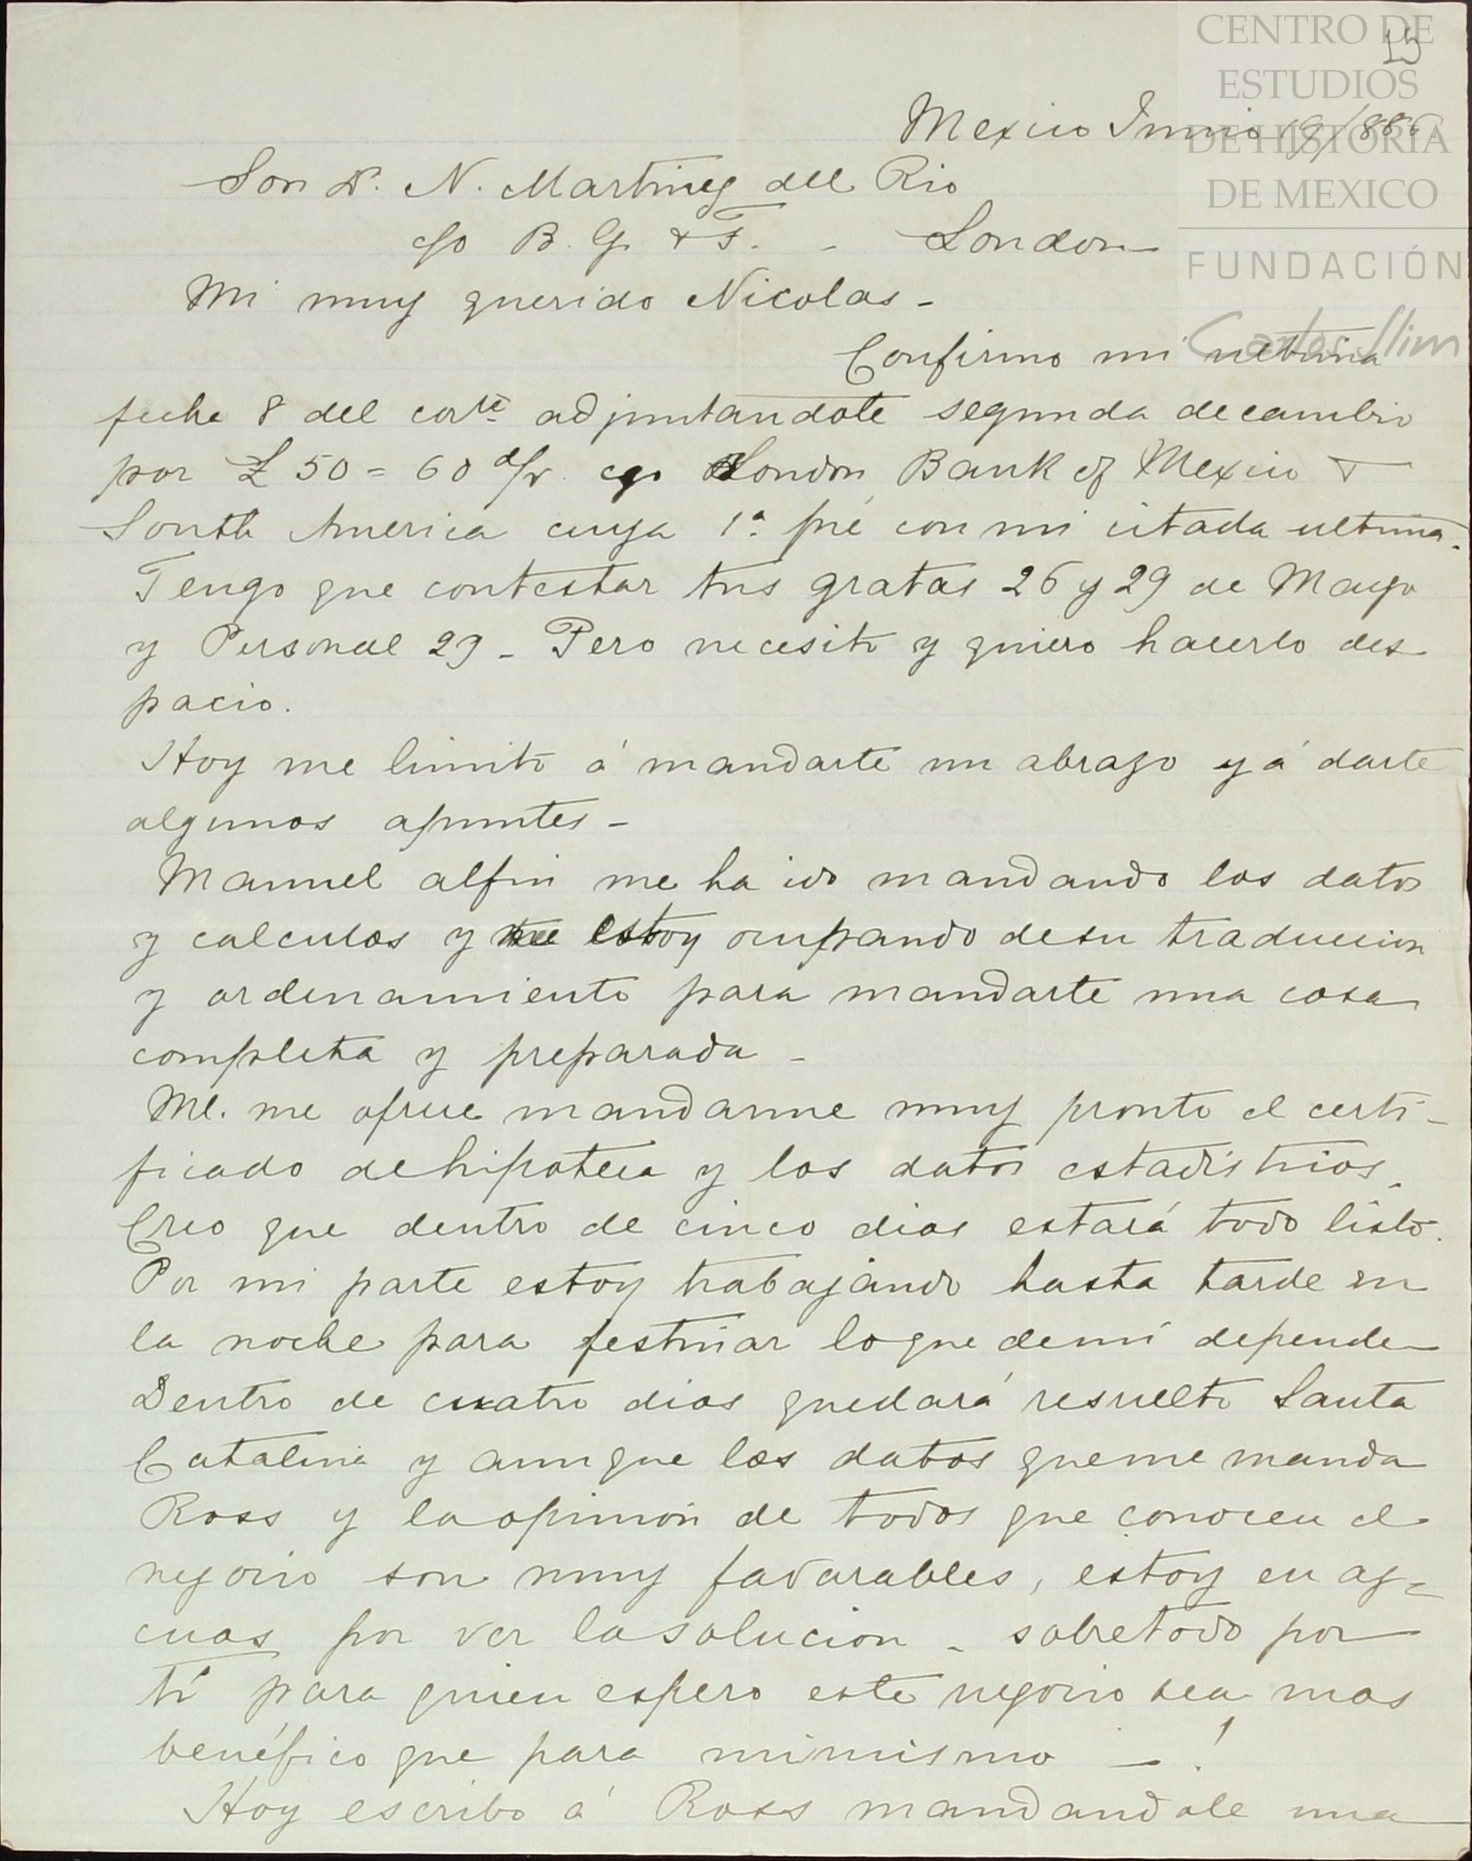 15
CENTRO DE
ESTUDIOS
DE HISTORIA
DE MEXICO
FUNDACIÓN
Carlos Slim
Mexico Junio 19/886.
Sor Dn. N. Martinez del Rio
c/o B. G. & F. - London
Mi muy querido Nicolas -
Confirmo mi ultima
fecha 8 del corte adjuntandote segunda de cambio
por £ 50 = 60 d/v. cgo London Bank of Mexico &
South America cuya 1a. fué con mi citada ultima.
Tengo que contestar tus gratas 26 y 29 de Mayo
y Personal 29 - Pero necesito y quiero hacerlo des
pacio.
Hoy me limito á mandarte un abrazo y á darte
algunos apuntes -
Manuel alfin me ha ido mandando los datos
y calculos y me estoy ocupando de su traduccion
y ordenamiento para mandarte una cosa
completa y preparada -
Ml. me ofrece mandarme muy pronto el certi-
ficado de hipoteca y los datos estadísticos.
Creo que dentro de cinco dias estará todo listo.
Por mi parte estoy trabajando hasta tarde en
la noche para festinar lo que de mí depende
Dentro de cuatro dias quedará resuelto Santa
Catalina y aunque los datos que me manda
Ross y la opinion de todos que conocen el
negocio son muy favorables, estoy en as-
cuas por ver la solucion - sobretodo por
tí para quien espero este negocio sea mas
benéfico que para mi mismo - !
Hoy escribo á Ross mandandole una